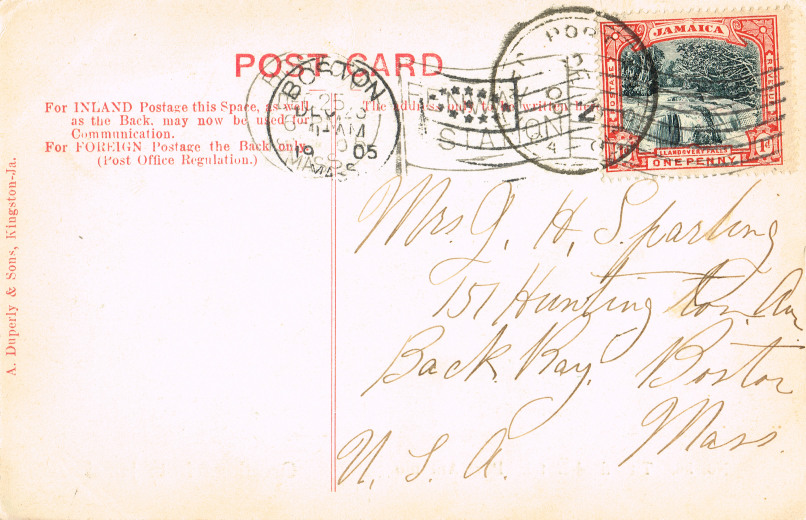 POST CARD
For INLAND Postage this Space, as well
as the Back, may now be used for
Communication.
For FOREIGN Postage the Back only.
(Post Office Regulation.)
The address only to be written here
BOSTON
MASS
05
STA
2
JAMAICA
POSTAGE
REVENUE
LLANDOVERY FALLS
1d
ONE PENNY
A. Duperly & Sons, Kingston-Ja.
Mrs. J. H. Sparling
151 Huntington Av
Back Bay. Boston
Mass.
U. S. A.